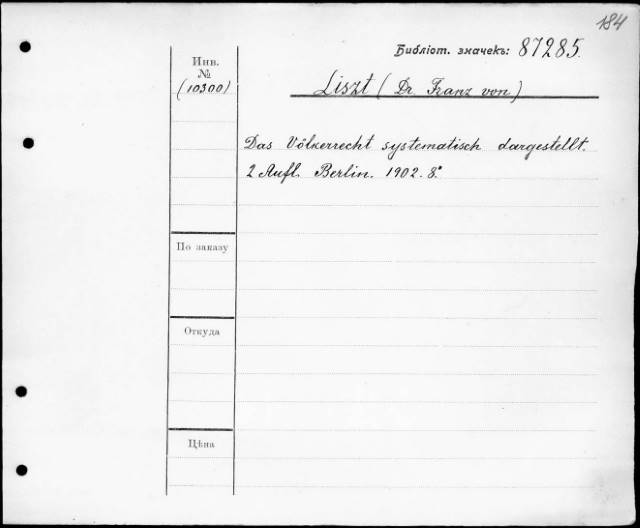 184
Библіот. значекъ: 87285.
Инв.
№
(10300)
Liszt (Dr. Franz von)
Das Völkerrecht systematisch dargestellt.
2 Aufl. Berlin. 1902. 8°
По заказу
Откуда
Цѣна